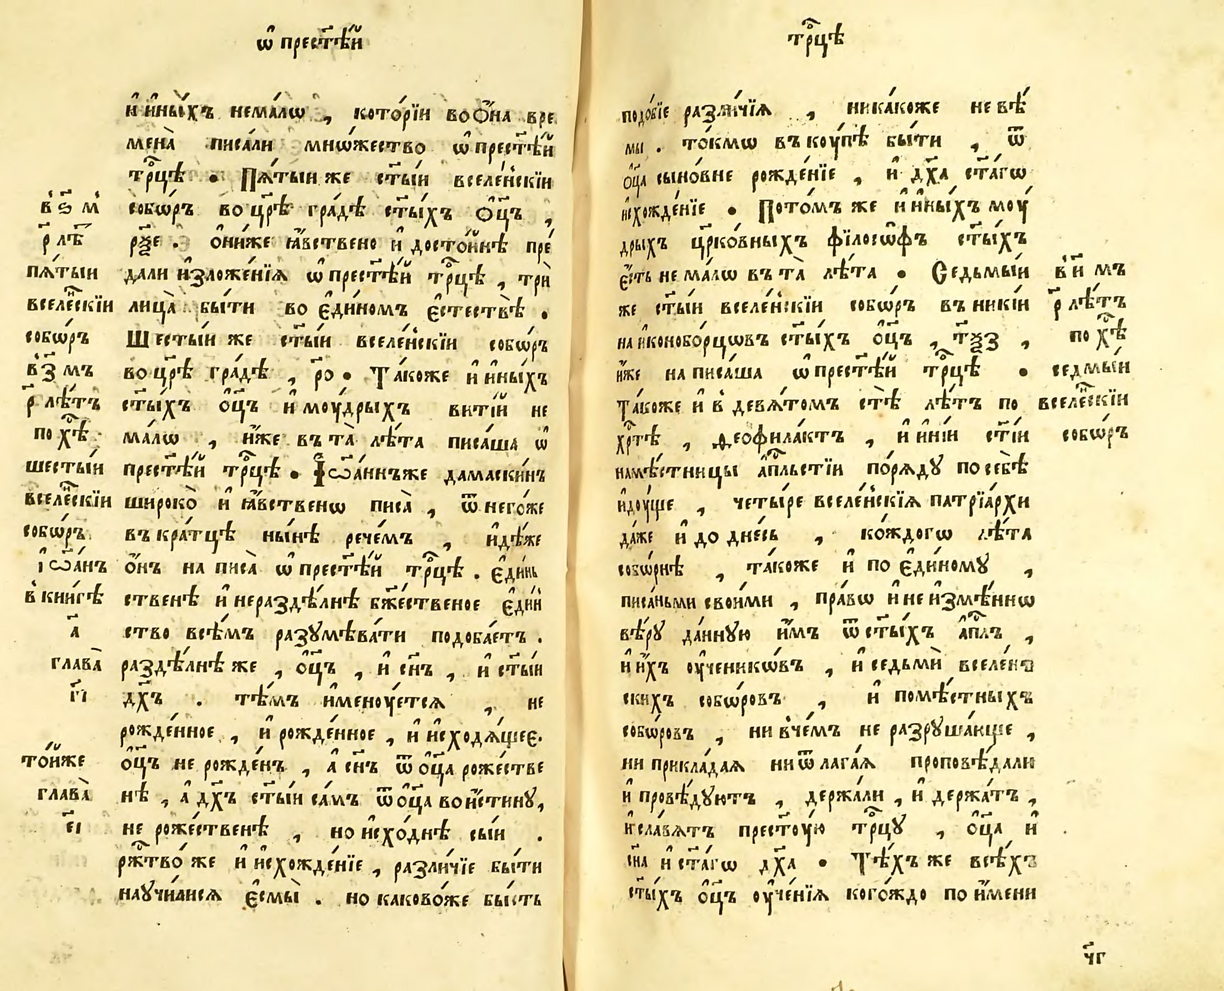 ѿ прест҃ѣй
и҆ и҆ны́хъ нема́лѡ , кото́рїи во ѻ҆́на вре
мена̀ писа́ли мнѡ́жество ѿ прест҃ѣй
трⷪ҇цѣ . Пѧ́тыи же ст҃ы́и вселе́нскїи
собѡ́ръ во цр҃ѣ гра́дѣ ст҃ы́хъ ѻ҆ц҃ъ ,
рѯ҃е . ѻ҆ни́же ꙗ҆́вствено и҆ досто́йнѣ пре́
дали и҆зложе́нїѧ ѿ прест҃ѣй трⷪ҇цѣ , трѝ
лица̀ бы́ти во є҆ди́номъ є҆стествѣ̀ .
Шесты́и же ст҃ы́и вселе́нскїи собѡ́ръ
во цр҃ѣ гра́дѣ , р҃о . Та́коже и҆ и҆ны́хъ
ст҃ы́хъ ѻ҆ц҃ъ и҆ моу́дрыхъ вити́й не
ма́лѡ , и҆́же въ та̀ лѣ́та писа́ша ѿ
прест҃ѣй трⷪ҇цѣ . І҆ѡа́ннъже дамаски́нъ
широко̀ и҆ ꙗ҆́вственѡ писа̀ , ѿ негѡ́же
въ кра́тцѣ ны́нѣ рече́мъ , и҆дѣ́же
ѻ҆́нъ на писа̀ ѿ прест҃ѣй трⷪ҇цѣ . є҆ди́нь
ственѣ и҆ нераздѣ́лнѣ бж҃ественое є҆ди́н
ство всѣ́мъ разꙋмѣва́ти подоба́етъ .
раздѣ́лнѣ же , ѻ҆ц҃ъ , и҆ сн҃ъ , и҆ ст҃ы́и
дх҃ъ . тѣ́мъ и҆меноу́етсѧ , не
рожде́нное , и҆ рожде́нное , и҆ и҆сходѧ́щее.
ѻ҆ц҃ъ не рожде́нъ , а҆ сн҃ъ ѿ ѻ҆ц҃а роже́стве
нѣ , а҆ дх҃ъ ст҃ы́и са́мъ ѿ ѻ҆ц҃а вои́стинꙋ,
не роже́ственѣ , но и҆схо́днѣ сы́и .
рж҃тво́ же и҆ и҆схожде́нїе , разли́чїе бы́ти
наꙋчи́лисѧ є҆смы̀ . но каково́же бы́сть
в҃ ѕ҃ м҃
р҃ лѣт
пѧ́тыи
вселе́нскїи
собѡ́ръ
в҃ з҃ мъ
р҃ лѣ́тъ
по хⷭ҇ѣ
шесты́и
вселе́нскїи
собѡ́ръ
і҆ѡа́нъ
в кни́гѣ
а҃
глава̀
г҃і
то́йже
глава̀
є҃і
трⷪ҇цѣ
подо́бїе разли́чїѧ , ника́коже не вѣ́
мы . то́кмѡ въ коу́пѣ бы́ти , ѿ
ѻ҆ц҃а сыно́вне рожде́нїе , и҆ дх҃а ст҃а́гѡ
и҆схожде́нїе . Пото́мъ же и҆ и҆ны́хъ моу́
дрыхъ цр҃ко́вныхъ фїло́сѡфъ ст҃ы́хъ
є҆́сть не ма́лѡ въ та̀ лѣ́та . Седьмы́и
же ст҃ы́и вселе́нскїи собѡ́ръ въ ники́и
на и҆коноборцѡ́въ ст҃ы́хъ ѻ҆ц҃ъ , тѯ҃з ,
и҆́же на писа́ша ѿ прест҃ѣй трⷪ҇цѣ .
Та́коже и҆ в девѧ́томъ стѣ̀ лѣ́тъ по
хр҃тѣ , ѳеофила́ктъ , и҆ и҆ні́и ст҃і́и
намѣ́стницы а҆пⷭ҇льстїи по́рѧдꙋ по себѣ̀
и҆доу́ще , четы́ре вселе́нскїѧ патрїа́рхи
да́же и҆ до дне́сь , ко́ждогѡ лѣ́та
собѡ́рнѣ , та́коже и҆ по є҆ди́номꙋ ,
писа́ньми свои́ми , пра́вѡ и҆ неизмѣ́ннѡ
вѣ́рꙋ да́ннꙋю и҆́мъ ѿ ст҃ы́хъ а҆пⷭ҇лъ ,
и҆ и҆́хъ оу҆ченикѡ́въ , и҆ седьмѝ вселе́нъ
скихъ собѡ́ровъ , и҆ помѣ́стныхъ
собѡ́ровъ , ни в че́мъ не разрꙋша́юще ,
ни прикла́даѧ ни ѿ лага́ѧ проповѣ́дали
и҆ провѣ́дуютъ , держа́ли , и҆ держа́тъ ,
и҆ сла́вѧтъ прест҃оу́ю трⷪ҇цꙋ , ѻ҆ц҃а и҆
сн҃а и҆ ст҃а́гѡ дх҃а . Тѣ́хъ же всѣ́хъ
ст҃ы́хъ ѻ҆ц҃ъ оу҆че́нїѧ кого́ждо по и҆́мени
в҃ и҃ мъ
р҃ лѣ́тъ
по хⷭ҇ѣ
седмы́и
вселе́нскїи
собѡ́ръ
ч҃г